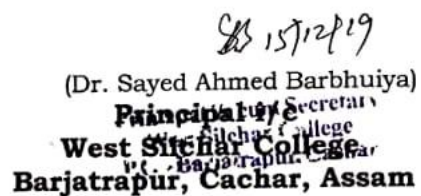 15/12/19
(Dr. Sayed Ahmed Barbhuiya)
Principal i/c
West Silchar College
Barjatrapur, Cachar, Assam